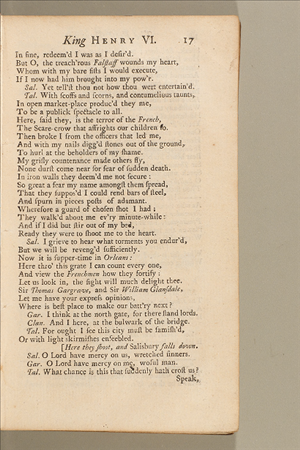 King HENRY VI. 17
In fine, redeem'd I was as I desir'd.
But O, the treach'rous Falstaff wounds my heart,
Whom with my bare fists I would execute,
If I now had him brought into my pow'r.
Sal. Yet tell'st thou not how thou wert entertain'd.
Tal. With scoffs and scorns, and contumelious taunts,
In open market-place produc'd they me,
To be a publick spectacle to all.
Here, said they, is the terror of the French,
The Scare-crow that affrights our children so.
Then broke I from the officers that led me,
And with my nails digg'd stones out of the ground,
To hurl at the beholders of my shame.
My grisly countenance made others fly,
None durst come near for fear of sudden death.
In iron walls they deem'd me not secure:
So great a fear my name amongst them spread,
That they suppos'd I could rend bars of steel,
And spurn in pieces posts of adamant.
Wherefore a guard of chosen shot I had;
They walk'd about me ev'ry minute-while:
And if I did but stir out of my bed,
Ready they were to shoot me to the heart.
Sal. I grieve to hear what torments you endur'd,
But we will be reveng'd sufficiently.
Now it is supper-time in Orleans:
Here thro' this grate I can count every one,
And view the Frenchmen how they fortify:
Let us look in, the sight will much delight thee.
Sir Thomas Gargrave, and Sir William Glansdale,
Let me have your express opinions,
Where is best place to make our batt'ry next?
Gar. I think at the north gate, for there stand lords.
Glan. And I here, at the bulwark of the bridge.
Tal. For ought I see this city must be famish'd,
Or with light skirmishes enfeebled.
[Here they shoot, and Salisbury falls down.
Sal. O Lord have mercy on us, wretched sinners.
Gar. O Lord have mercy on me, woful man.
Tal. What chance is this that suddenly hath crost us?
Speak,